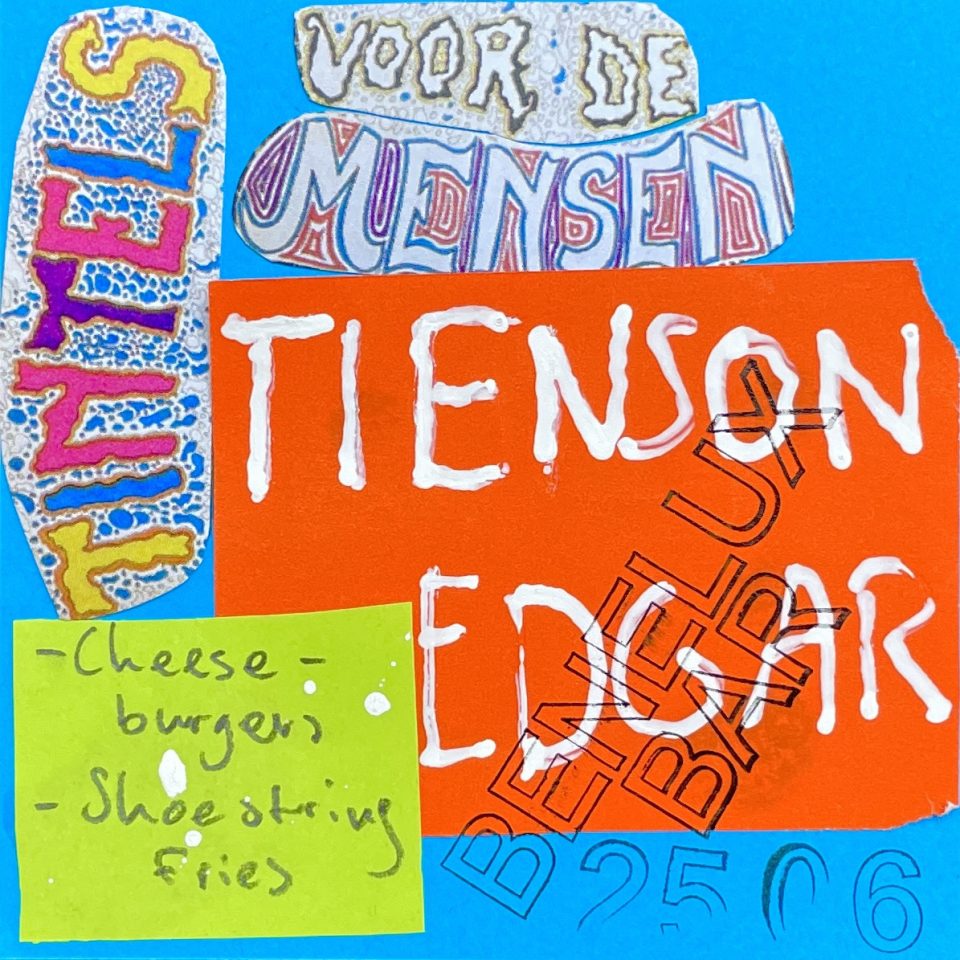 TINTELS
VOOR DE
MENSEN
TIENSON
EDGAR
BENELUX
BAR
2506
- Cheese-
burgers
- Shoestring
Fries